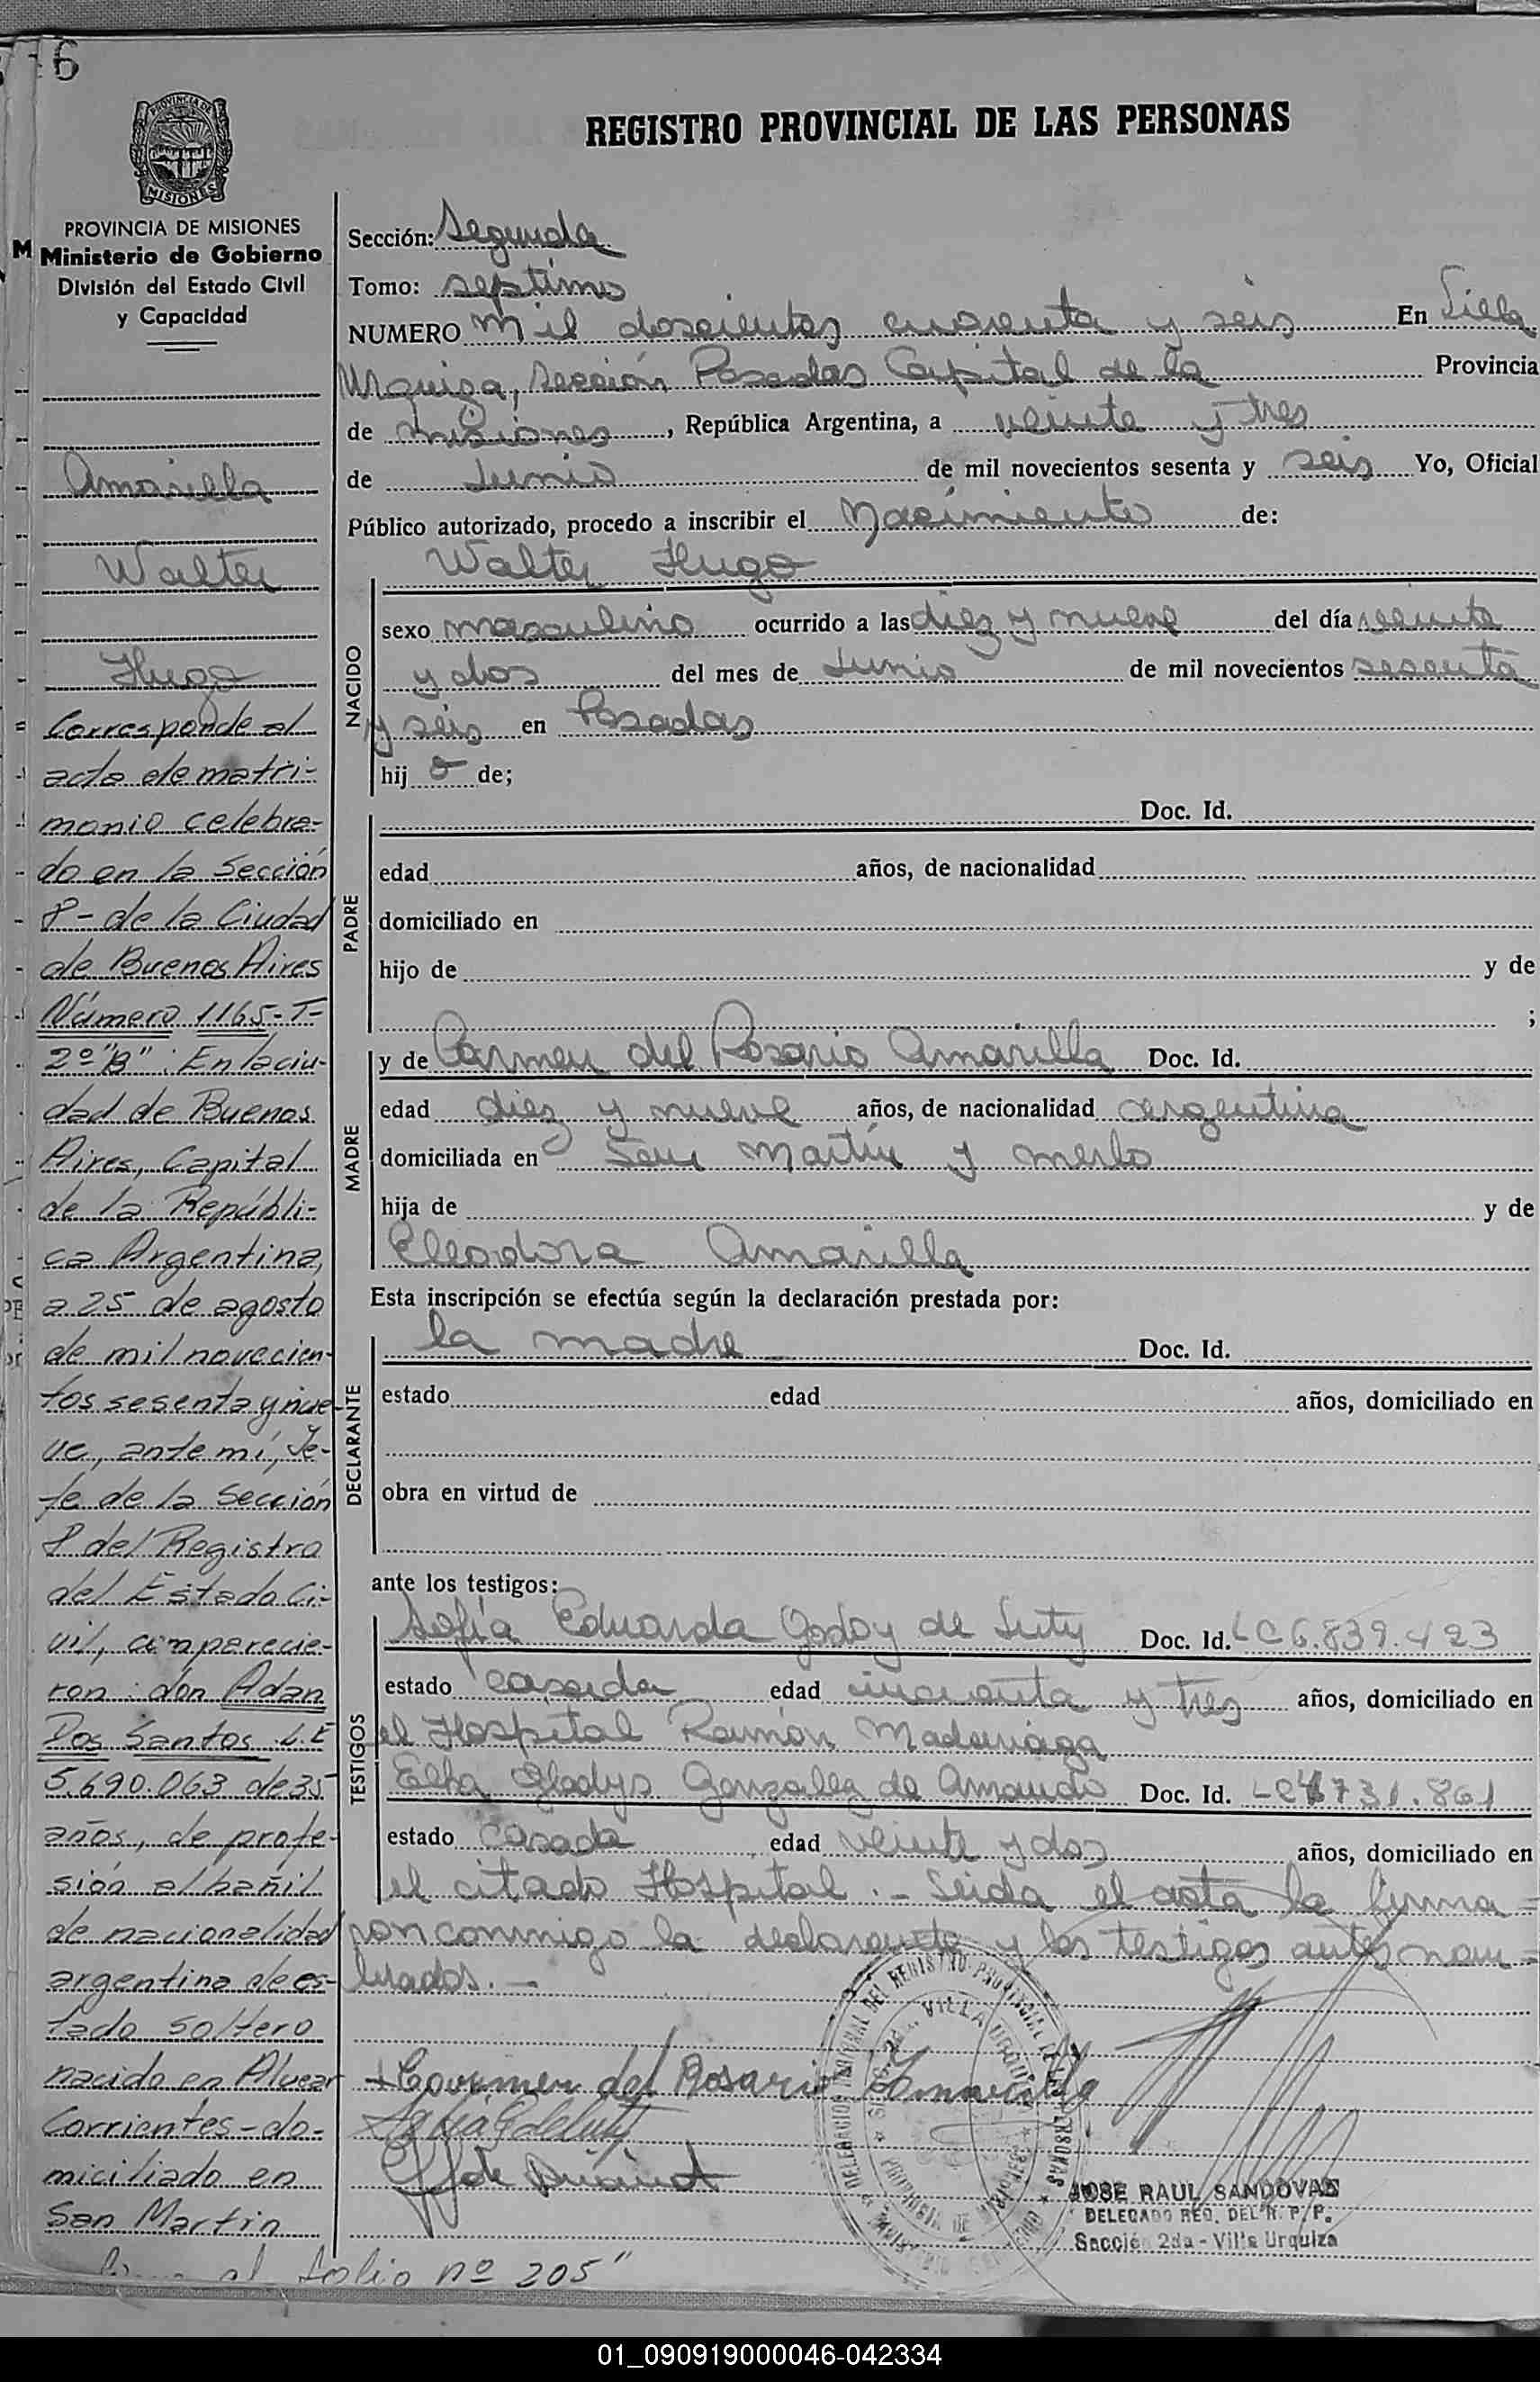 6
REGISTRO PROVINCIAL DE LAS PERSONAS
PROVINCIA DE
MISIONES
PROVINCIA DE MISIONES
Ministerio de Gobierno
División del Estado Civil
y Capacidad
Amarilla
Walter
Hugo
Corresponde al
acta de matri-
monio celebra-
do en la Sección
8- de la Ciudad
de Buenos Aires
Número 1165-T-
2º "B". En la ciu-
dad de Buenos
Aires, Capital
de la Repúbli-
ca Argentina,
a 25 de agosto
de mil novecien-
tos sesenta y nue-
ve, ante mí, Je-
fe de la Sección
8 del Registro
del Estado Ci-
vil, comparecie-
ron: don Adan
Dos Santos L.E
5.690.063 de 35
años, de profe-
sión albañil
de nacionalidad
argentina de es-
tado soltero
nacido en Alvear
Corrientes-do-
miciliado en
San Martin
al folio nº 205"
Sección: Segunda
Tomo: septimo
NUMERO mil doscientos cuarenta y seis En Villa
Urquiza, Sección Posadas Capital de la Provincia
de Misiones, República Argentina, a veinte y tres
de Junio de mil novecientos sesenta y seis Yo, Oficial
Público autorizado, procedo a inscribir el Nacimiento de:
Walter Hugo
NACIDO
sexo masculino ocurrido a las diez y nueve del día veinte
y dos del mes de Junio de mil novecientos sesenta
y seis en Posadas
hij o de;
PADRE
Doc. Id.
edad años, de nacionalidad
domiciliado en
hijo de y de
;
MADRE
y de Carmen del Rosario Amarilla Doc. Id.
edad diez y nueve años, de nacionalidad argentina
domiciliada en San Martín y Merlo
hija de y de
Eleodora Amarilla
Esta inscripción se efectúa según la declaración prestada por:
DECLARANTE
la madre Doc. Id.
estado edad años, domiciliado en
obra en virtud de
ante los testigos:
TESTIGOS
Sofía Eduarda Godoy de Doc. Id. LC 6.839.423
estado casada edad cincuenta y tres años, domiciliado en
el Hospital Ramón Madariaga
Elba Gladys Gonzalez de Doc. Id. LC 731.861
estado casada edad veinte y dos años, domiciliado en
el citado Hospital.- Leida el acta la firma=
ron conmigo la declarante y los testigos antes nom=
brados.-
Carmen del Rosario Amarilla
DELEGACION REGIONAL DEL REGISTRO PROVINCIAL DE LAS PERSONAS
VILLA URQUIZA
PROVINCIA DE MISIONES
JOSE RAUL SANDOVAL
DELEGADO REG. DEL R. P. P.
Sección 2da - Villa Urquiza
01_090919000046-042334